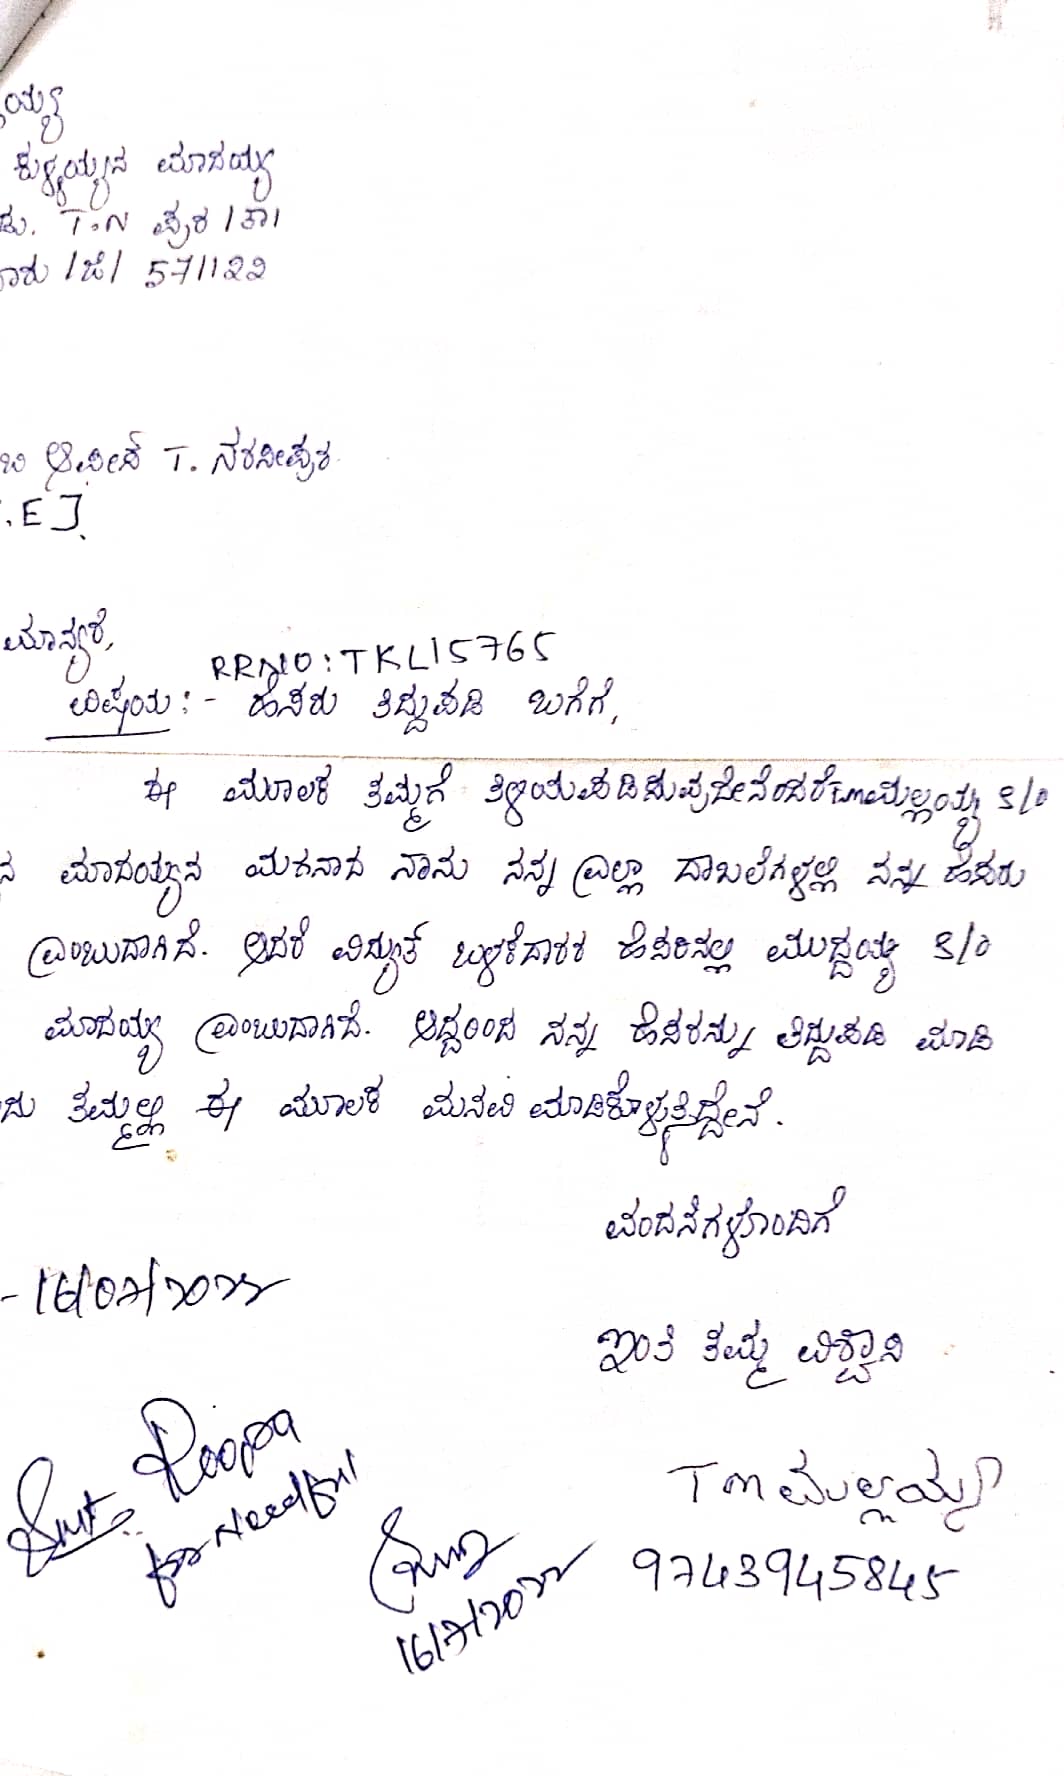 ಯ್ಯ
ಕುಳ್ಳಯ್ಯನ ಮಾದಯ್ಯ
T.N ಪುರ /ತಾ/
/ಜಿ/ 571122
ಆಫೀಸ್ T. ನರಸೀಪುರ
.E].
ಮಾನ್ಯರೆ,
RRNO:TKL15765
ವಿಷಯ:- ಹೆಸರು ತಿದ್ದುಪಡಿ ಬಗೆಗೆ,
ಈ ಮೂಲಕ ತಮ್ಮಗೆ ತಿಳಿಯಪಡಿಸುವುದೇನೆಂದರೆ T.m ಮಲ್ಲಯ್ಯ S/o
ನ ಮಾದಯ್ಯನ ಮಗನಾದ ನಾನು ನನ್ನ ಎಲ್ಲಾ ದಾಖಲೆಗಳಲ್ಲಿ ನನ್ನ ಹೆಸರು
ಎಂಬುದಾಗಿದೆ. ಆದರೆ ವಿದ್ಯುತ್ ಬಳಕೆದಾರರ ಹೆಸರಿನಲ್ಲಿ ಮುದ್ದಯ್ಯ S/o
ಮಾದಯ್ಯ ಎಂಬುದಾಗಿದೆ. ಆದ್ದರಿಂದ ನನ್ನ ಹೆಸರನ್ನು ತಿದ್ದುಪಡಿ ಮಾಡಿ
ದು ತಮ್ಮಲ್ಲಿ ಈ ಮೂಲಕ ಮನವಿ ಮಾಡಿಕೊಳ್ಳುತ್ತಿದ್ದೇನೆ.
ವಂದನೆಗಳೊಂದಿಗೆ
- 16/07/2022
ಇಂತಿ ತಮ್ಮ ವಿಶ್ವಾಸಿ
Smt. Roopa
for Needful
T m ಮಲ್ಲಯ್ಯ
16/7/2022
9743945845